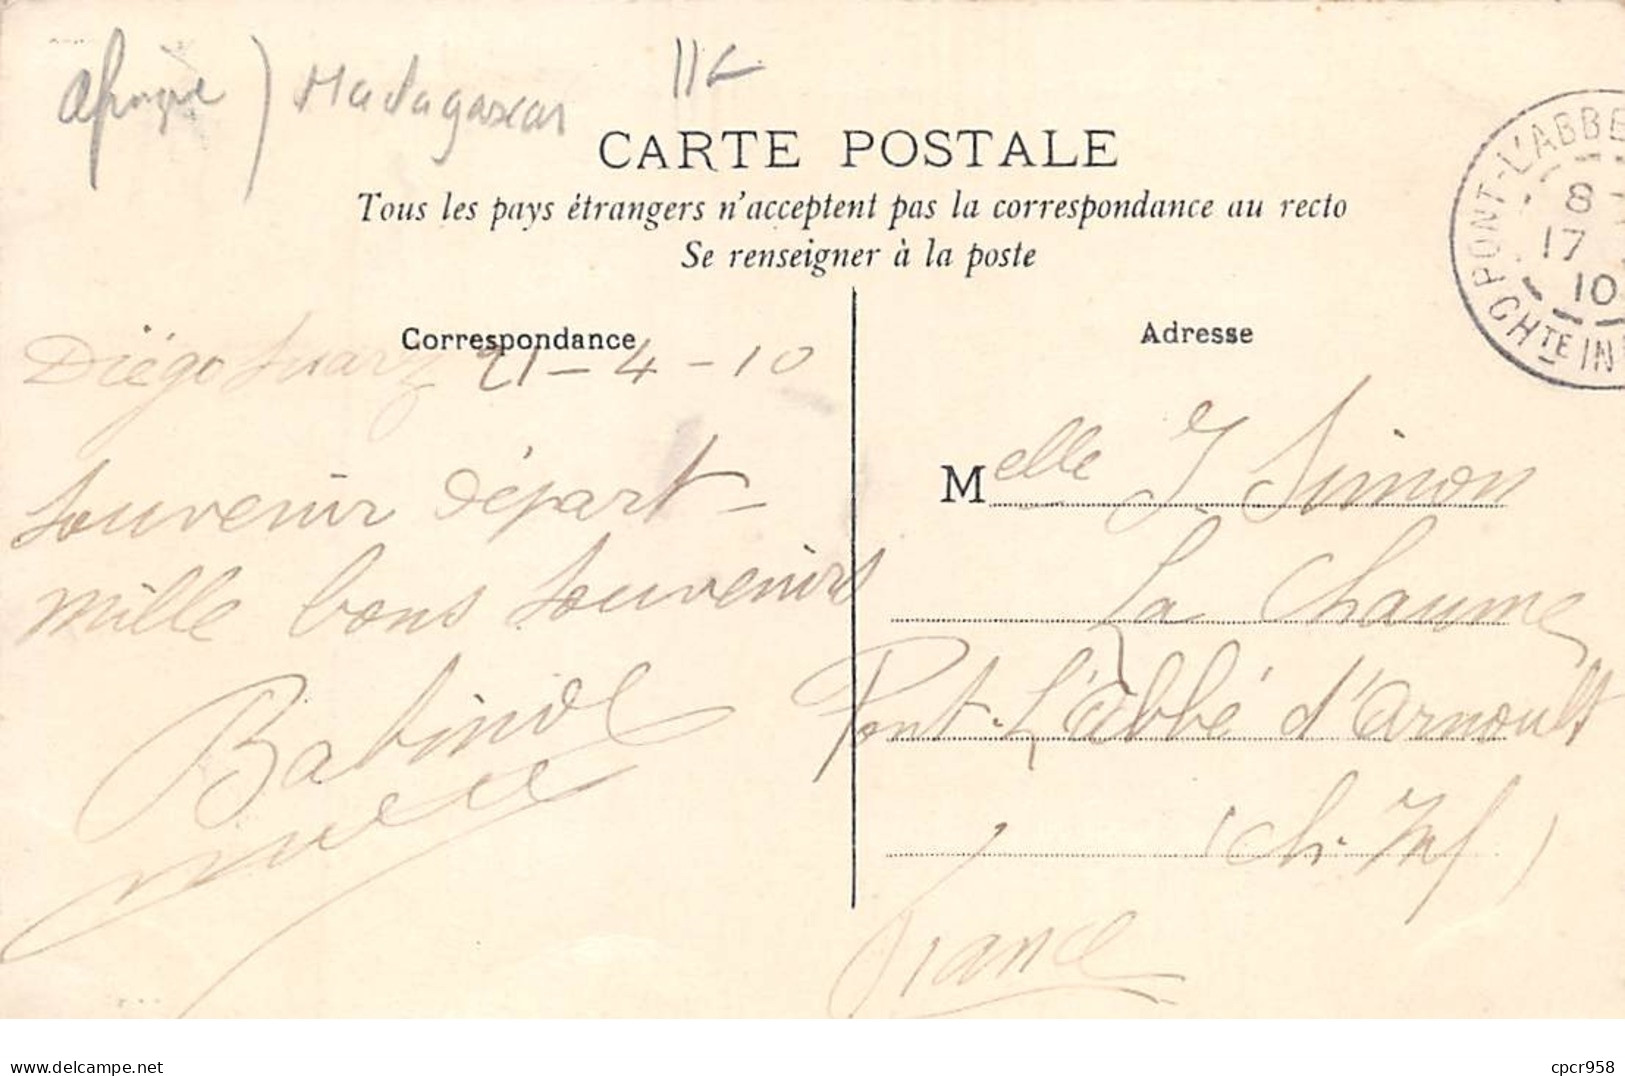 Afrique) Madagascar
CARTE POSTALE
Tous les pays étrangers n'acceptent pas la correspondance au recto
Se renseigner à la poste
PONT-L'ABBE
8
17
10
CHTE IN
Correspondance
Adresse
Diégo Suarez 21-4-10
Souvenir départ-
Mille bons souvenirs
Melle J Simon
La Chaume
Pont-L'abbé d'Arnoult
(Ch. Inf)
France
Delcampe.net
cpcr958